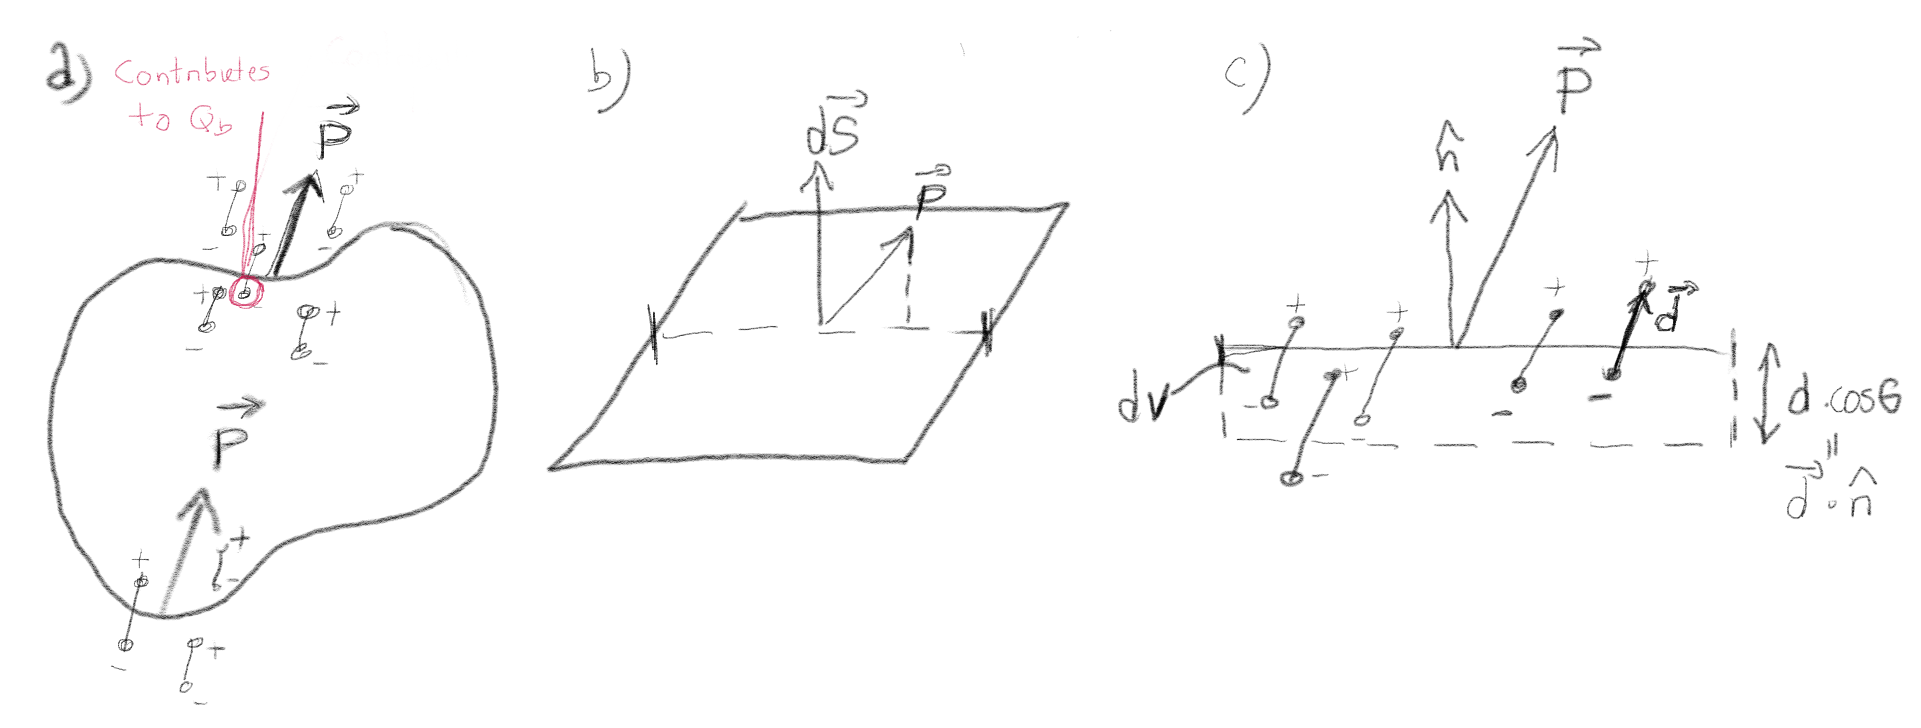 a) Contributes
to Qb
P⃗
+ +
- + -
+ +
- - -
P⃗
+ +
-
+
- -
b)
dS⃗
P⃗
c)
P⃗
n̂
+ + + +
d⃗
+
dV
- - - -
-
d · cosθ
=
d⃗ · n̂